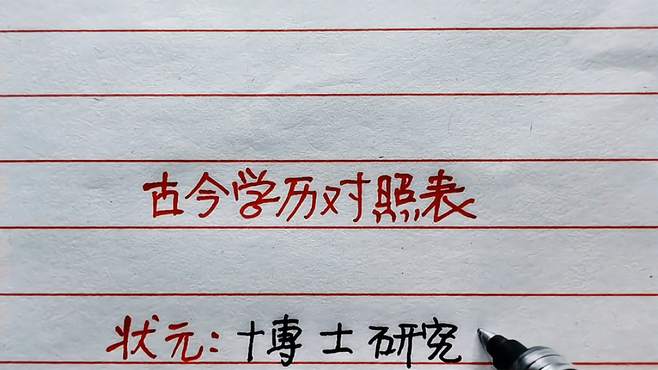 古今学历对照表
状元：博士研究